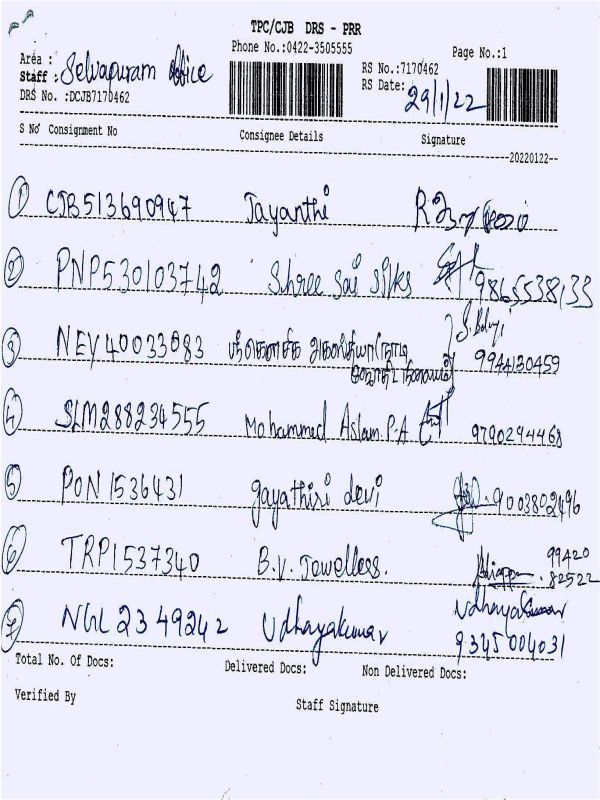 TPC/CJB DRS - PRR
Phone No.:0422-3505555
Page No.:1
Area : Selvapuram office
Staff :
RS No.:7170462
RS Date: 29/1/22
DRS No. :DCJB7170462
S No Consignment No Consignee Details Signature
20220122
1 CJB513690947 Jayanthi
2 PNP530103742 Shree Sai Silks 9865538133
3 NEY40033083 9944130459
4 SLM288234555 Mohammed Aslam.P.A 9790294468
5 PON1536431 gayathiri devi 9003802496
6 TRP1537340 B.V. Jewellers. 99420
82522
7 NGL2349242 Udhayakumar Udhayakumar
9345004031
Total No. Of Docs: Delivered Docs: Non Delivered Docs:
Verified By Staff Signature